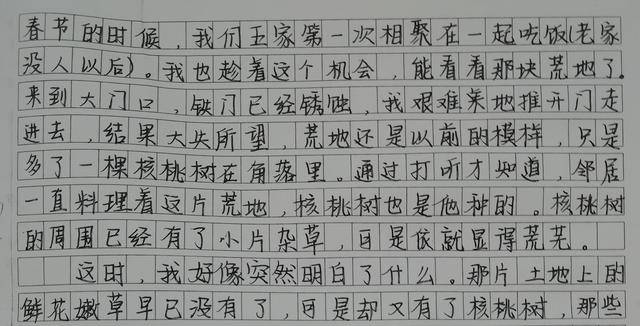 春节的时候，我们五家第一次相聚在一起吃饭(老家
没人以后)。我也趁着这个机会，能看看那块荒地了。
来到大门口，铁门已经锈蚀，我艰难来地推开门走
进去，结果大失所望，荒地还是以前的模样，只是
多了一棵核桃树在角落里。通过打听才知道，邻居
一直料理着这片荒地，核桃树也是他种的。核桃树
的周围已经有了小片杂草，可是依就显得荒芜。
这时，我好像突然明白了什么。那片土地上的
鲜花嫩草早已没有了，可是却又有了核桃树，那些